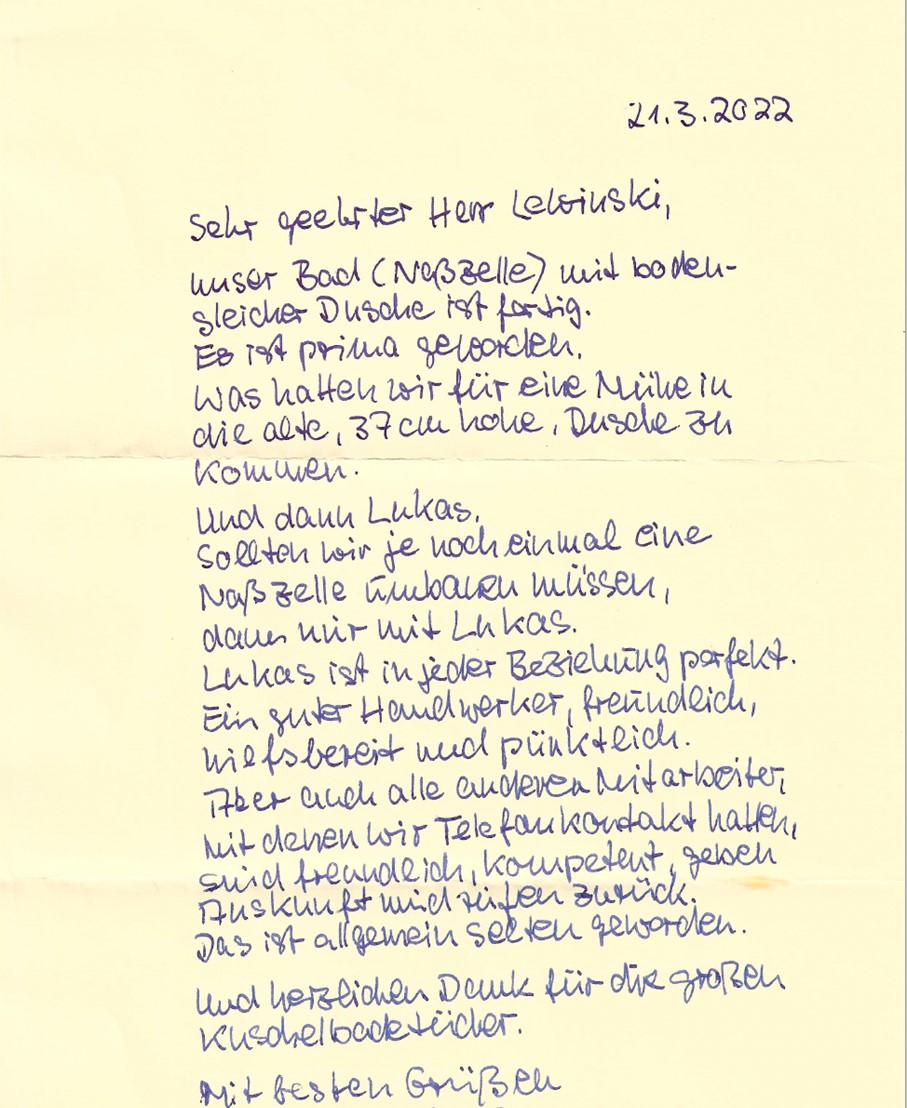 21.3.2022
Sehr geehrter Herr Lewinski,
unser Bad (Naßzelle) mit boden-
gleicher Dusche ist fertig.
Es ist prima geworden.
Was hatten wir für eine Mühe in
die alte, 37 cm hohe, Dusche zu
kommen.
Und dann Lukas.
Sollten wir je noch einmal eine
Naßzelle umbauen müssen,
dann nur mit Lukas.
Lukas ist in jeder Beziehung perfekt.
Ein guter Handwerker, freundlich,
hilfsbereit und pünktlich.
Aber auch alle anderen Mitarbeiter,
mit denen wir Telefonkontakt hatten,
sind freundlich, kompetent, geben
Auskunft und rufen zurück.
Das ist allgemein selten geworden.
Und herzlichen Dank für die großen
Kuschelbadetücher.
Mit besten Grüßen